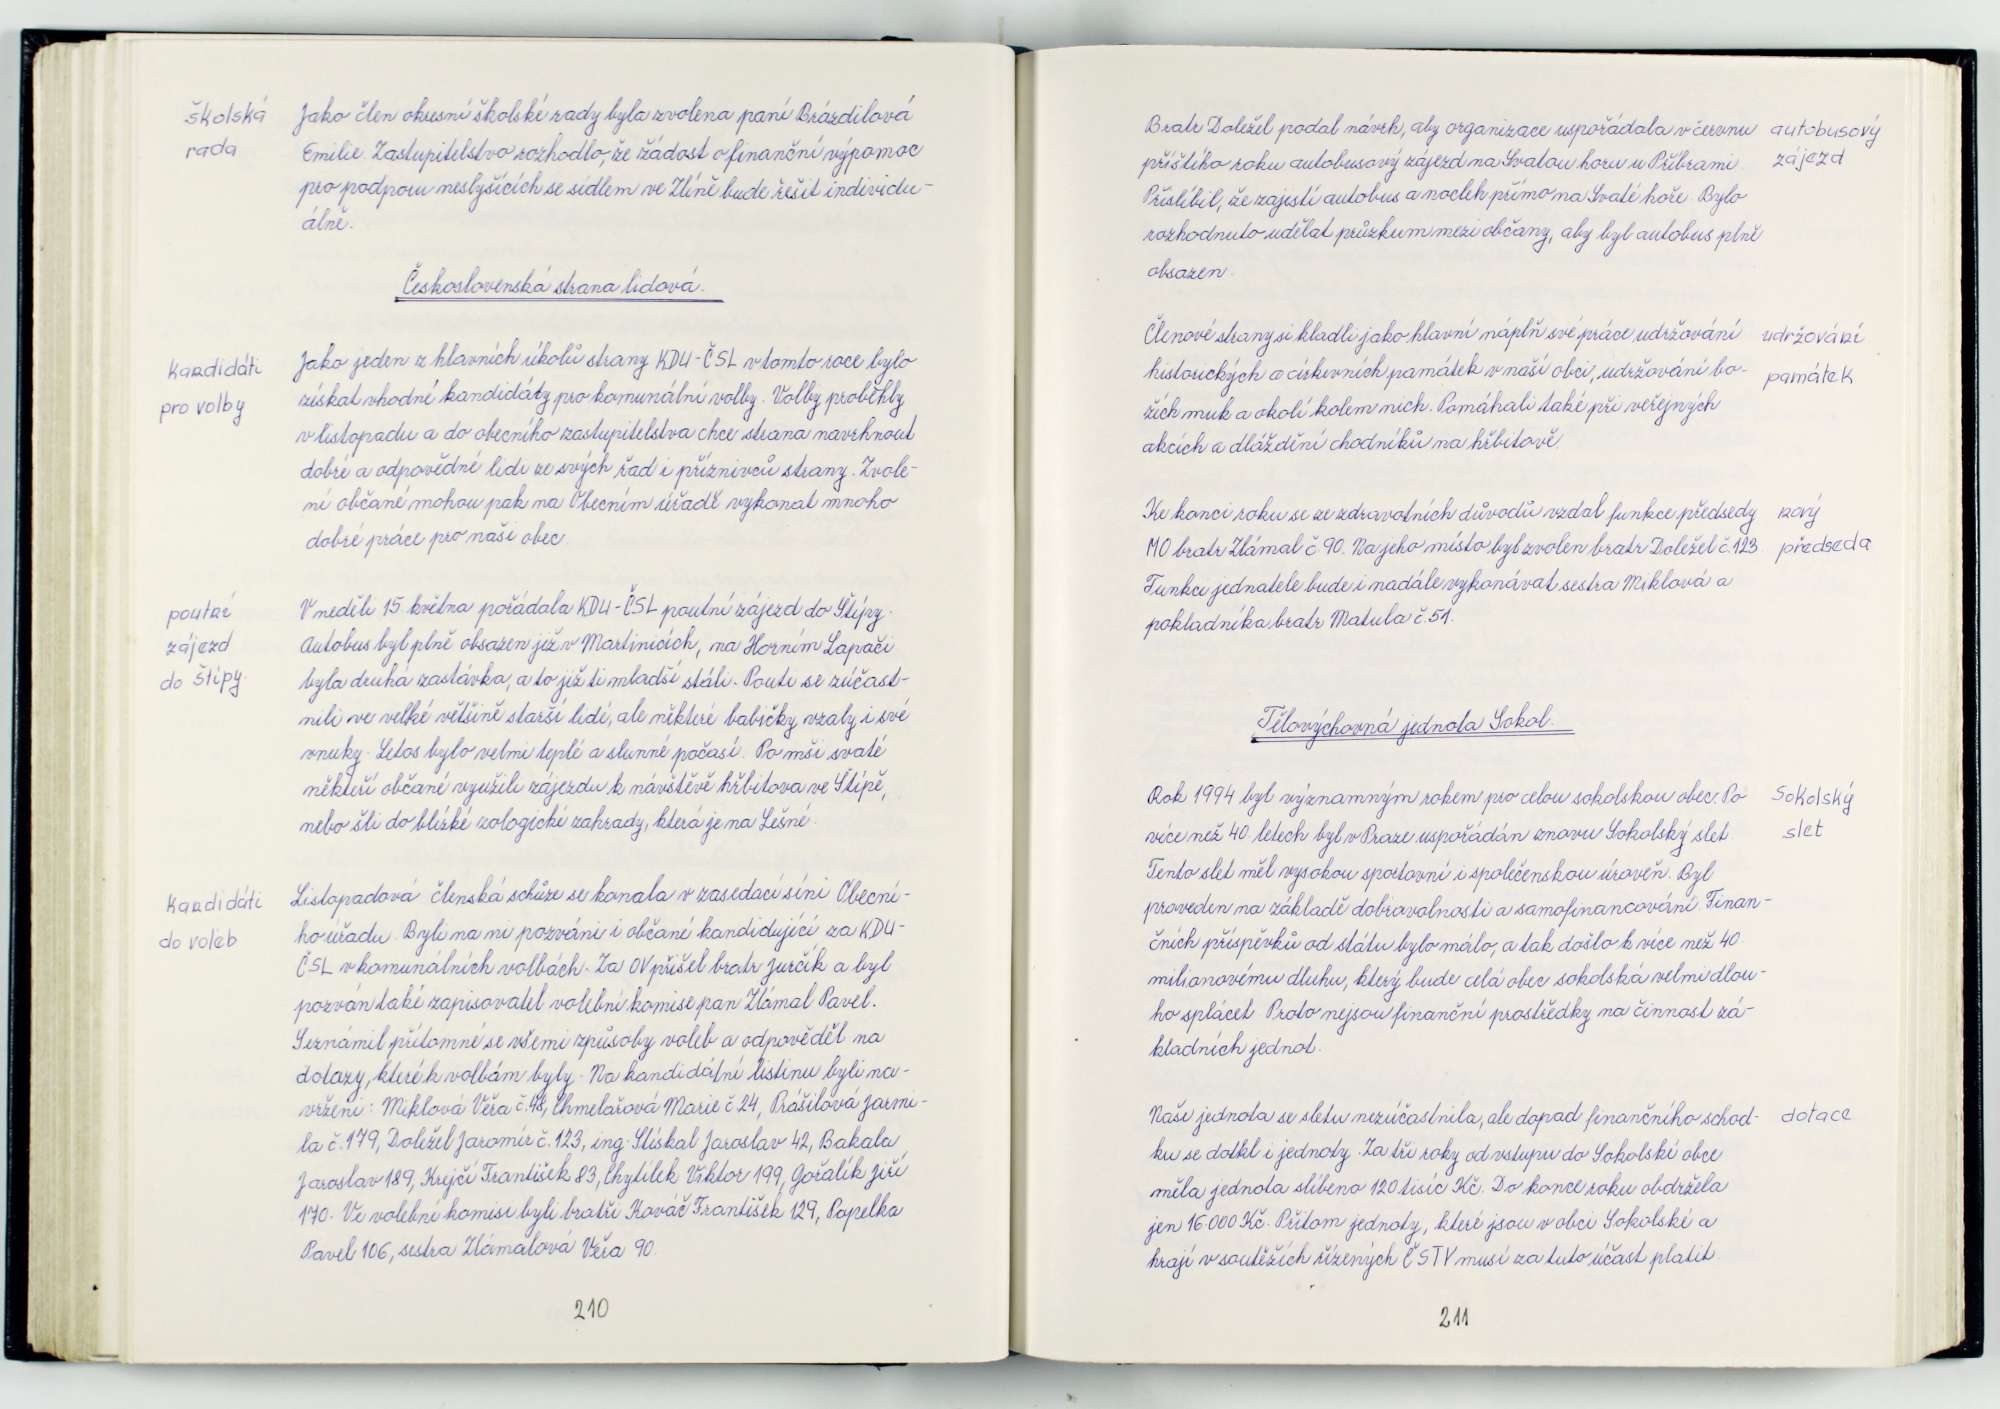 školská
rada
Jako člen okresní školské rady byla zvolena paní Brázdilová
Emilie. Zastupitelstvo rozhodlo, že žádost o finanční výpomoc
pro podporu neslyšících se sídlem ve Zlíně bude řešit individu-
álně.
Československá strana lidová.
kandidáti
pro volby
Jako jeden z hlavních úkolů strany KDU-ČSL v tomto roce bylo
získat vhodné kandidáty pro komunální volby. Volby proběhly
v listopadu a do obecního zastupitelstva chce strana navrhnout
dobré a odpovědné lidi ze svých řad i příznivců strany. Zvole-
ní občané mohou pak na Obecním úřadě vykonat mnoho
dobré práce pro naši obec.
poutní
zájezd
do Štípy.
V neděli 15. května pořádala KDU-ČSL poutní zájezd do Štípy.
Autobus byl plně obsazen již v Martinicích, na Horním Lapači
byla druhá zastávka, a to již ti mladší stáli. Pouti se zúčast-
nili ve velké většině starší lidé, ale některé babičky vzaly i své
vnuky. Letos bylo velmi teplé a slunné počasí. Po mši svaté
někteří občané využili zájezdu k návštěvě hřbitova ve Štípě,
nebo šli do blízké zologické zahrady, která je na Lešné.
kandidáti
do voleb
Listopadová členská schůze se konala v zasedací síni Obecní-
ho úřadu. Byli na ni pozváni i občané kandidující za KDU-
ČSL v komunálních volbách. Za OV přišel bratr Jurčík a byl
pozván také zapisovatel volební komise pan Zlámal Pavel.
Seznámil přítomné se všemi způsoby voleb a odpověděl na
dotazy, které k volbám byly. Na kandidátní listinu byli na-
vrženi: Miklová Věra č.48, Chmelařová Marie č 24, Prášilová Jarmi-
la č.179, Doležel Jaromír č.123, ing. Stískal Jaroslav 42, Bakala
Jaroslav 189, Krejčí František 83, Chytilek Viktor 199, Gořalík Jiří
170. Ve volební komisi byli bratři Kováč František 129, Popelka
Pavel 106, sestra Zlámalová Věra 90.
210
Bratr Doležel podal návrh, aby organizace uspořádala v červnu
příštího roku autobusový zájezd na Svatou horu u Příbrami.
Přislíbil, že zajestí autobus a nocleh přímo na Svaté hoře. Bylo
rozhodnuto udělat průzkum mezi občany, aby byl autobus plně
obsazen.
autobusový
zájezd
Členové strany si kladli jako hlavní náplň své práce udržování
historických a církevních památek v naší obci, udržování bo-
žích muk a okolí kolem nich. Pomáhali také při veřejných
akcích a dláždění chodníků na hřbitově.
udržování
památek
Ke konci roku se ze zdravotních důvodů vzdal funkce předsedy
MO bratr Zlámal č 90. Na jeho místo byl zvolen bratr Doležel č.123.
Funkci jednatele bude i nadále vykonávat sestra Miklová a
pokladníka bratr Matula č.51.
nový
předseda
Tělovýchovná jednota Sokol.
Rok 1994 byl významným rokem pro celou sokolskou obec. Po
více než 40 letech byl v Praze uspořádán znovu Sokolský slet.
Tento slet měl vysokou sportovní i společenskou úroveň. Byl
proveden na základě dobravolnosti a samofinancování. Finan-
čních příspěvků od státu bylo málo, a tak došlo k více než 40
milionovému dluhu, který bude celá obec sokolská velmi dlou-
ho splácet. Proto nejsou finanční prostředky na činnost zá-
kladních jednot.
Sokolský
slet
Naše jednota se sletu nezúčastnila, ale dopad finančního schod-
ku se dotkl i jednoty. Za tři roky od vstupu do Sokolské obce
měla jednota slíbeno 120 tisíc Kč. Do konce roku obdržela
jen 16.000 Kč. Přitom jednoty, které jsou v obci Sokolské a
hrají v soutěžích řízených ČSTV musí za tuto účast platit
dotace
211